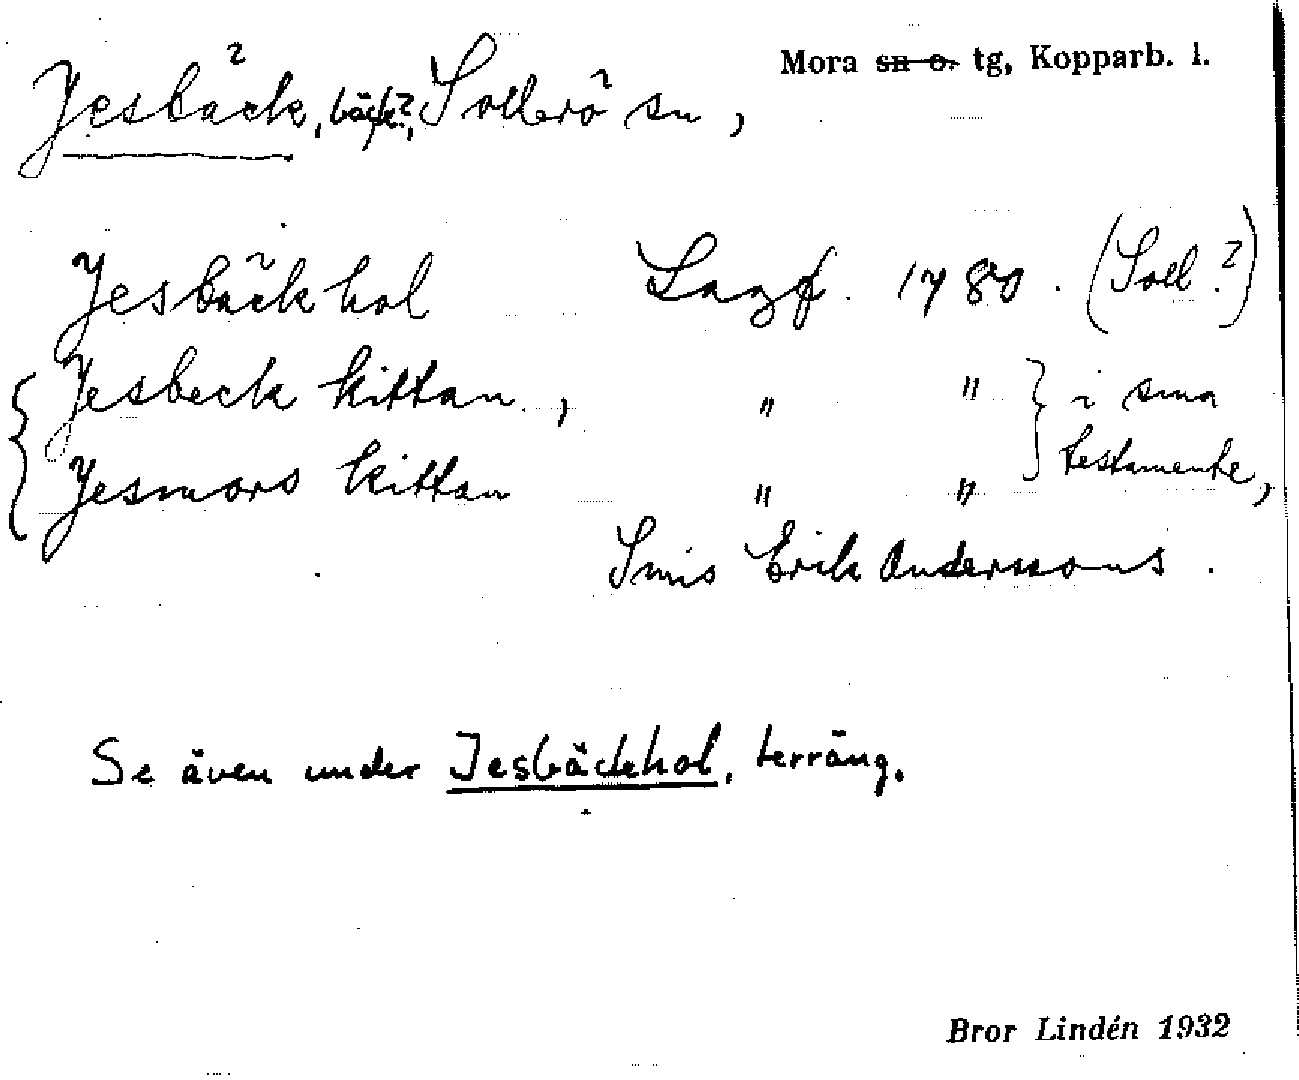 Mora sn o. tg, Kopparb. l.
Jesbäck, bäck?, Sollerö sn,
Jesbäckhol Lagf. 1780. (Soll?)
Jesbeck kittan, " " } i sina
Jesmors kittan " " testamente,
Smis Erik Anderssons.
Se även under Jesbäckhol, terräng.
Bror Lindén 1932